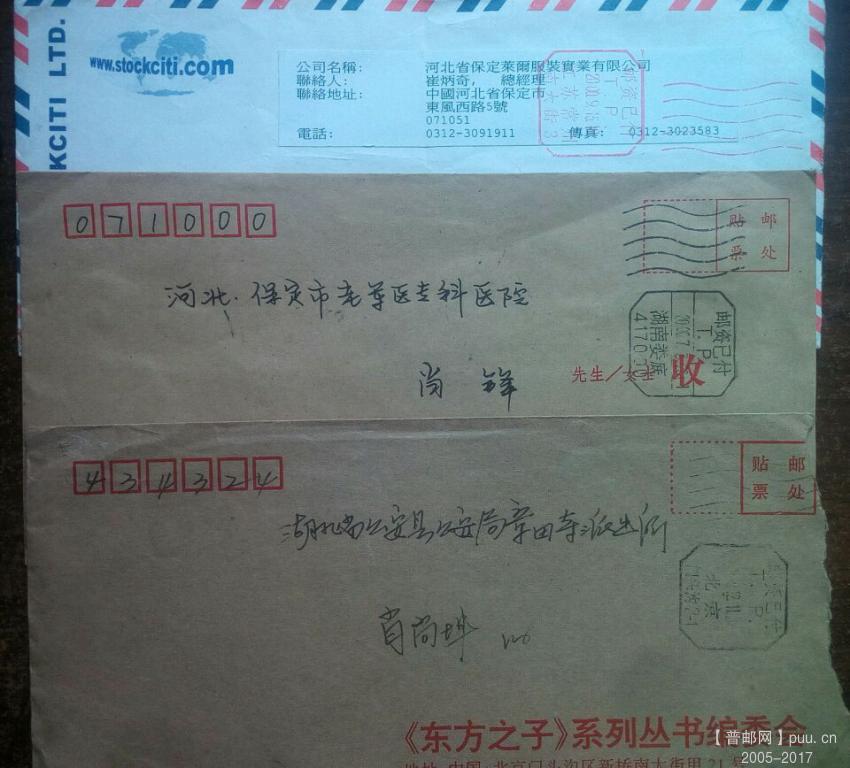 KCITI LTD.
www.stockciti.com
公司名稱: 河北省保定萊爾服裝實業有限公司
聯絡人: 崔炳奇, 總經理
聯絡地址: 中國河北省保定市
東風西路5號
071051
電話: 0312-3091911 傳真: 0312-3023583
邮资已付
T. P.
071000
贴 邮
票 处
河北.保定市老年医专科医院
尚 锋
先生/女士 收
邮资已付
T. P.
湖南娄底
434324
贴 邮
票 处
湖北省公安县公安局章田寺派出所
肖尚坤
T. P.
北京
《东方之子》系列丛书编委会
地址:中国·北京门头沟区新桥南大街甲21号
【普邮网】puu.cn
2005-2017